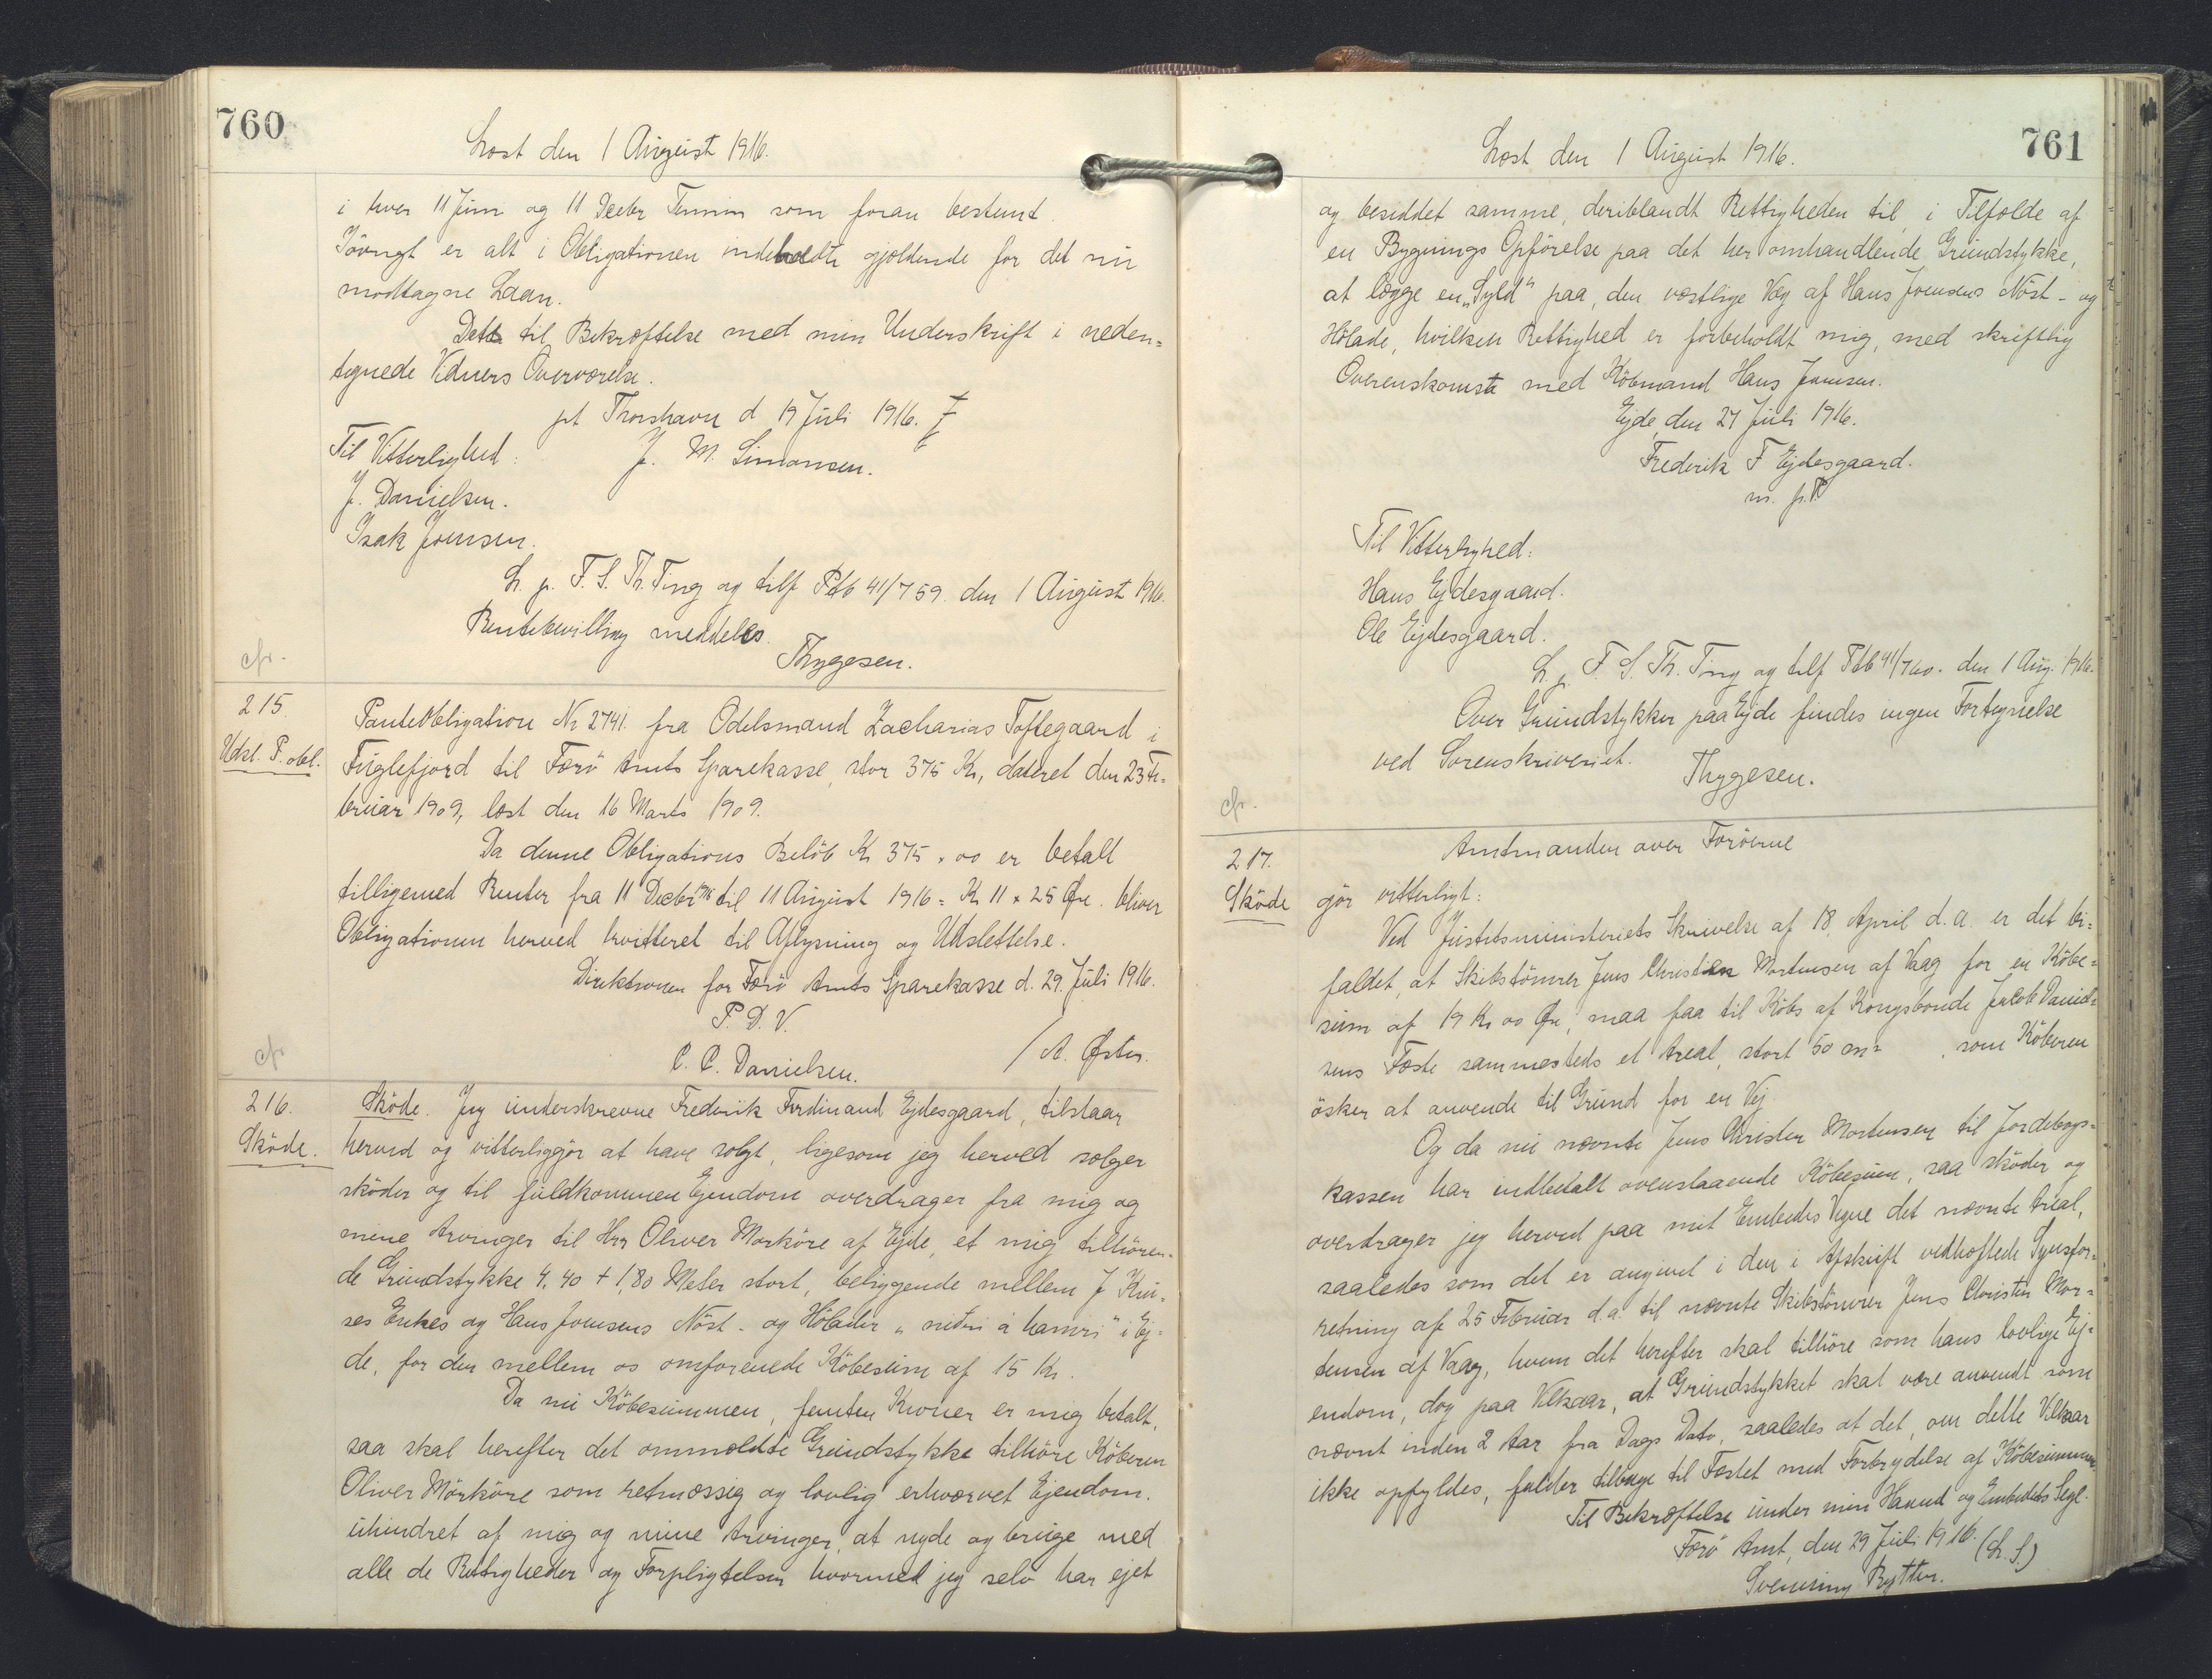 760
Læst den 1 August 1916.
i hver 11 Juni og 11 Decbr Termin som foran bestemt.
Iøvrigt er alt i Obligationen indeholdte gjældende for det nu
modtagne Laan.
Dette til Bekræftelse med min Underskrift i neden=
tegnede Vidners Overværelse.
pt Thorshavn d 19 Juli 1916.
Til Vitterlighed:
J. M. Simonsen.
J. Danielsen.
Isak Joensen.
L. p. F. S. Th. Ting og tilf Ptb 41/759. den 1 August 1916.
Rentebevilling meddeles.
Thygesen.
cfr.
215.
Udsl. P. obl.
Panteobligation Nr 2741. fra Odelsmand Zacharias Toftegaard i
Fuglefjord til Færø Amts Sparekasse, stor 375 Kr, dateret den 23 Fe=
bruar 1909, læst den 16 Marts 1909.
Da denne Obligations Beløb Kr 375 . 00 er betalt
tilligemed Renter fra 11 Decbr 1915 til 11 August 1916 = Kr 11 . 25 Øre. bliver
Obligationen herved kvitteret til Aflysning og Udslettelse.
Direktionen for Færø Amts Sparekasse d. 29. Juli 1916.
P. D. V.
C. C. Danielsen.
/ A. Øster.
cfr
216.
Skøde.
Skøde. Jeg underskrevne Frederik Ferdinand Ejdesgaard, tilstaar
herved og vitterliggør at have solgt, ligesom jeg herved sælger
skøder og til fuldkommen Ejendom overdrager fra mig og
mine Arvinger til Hrr Oliver Mørkøre af Ejde, et mig tilhøren=
de Grundstykke 4.40 + 1,80 Meter stort, beliggende mellem J Kru=
ses Enkes og Hans Joensens Nöst- og Hølader "nidri á hamri" i Ej=
de, for den mellem os omforenede Købesum af 15 Kr.
Da nu Købesummen, femten Kroner er mig betalt,
saa skal herefter det ommældte Grundstykke tilhøre Køberen
Oliver Mörköre som retmæssig og lovlig erhvervet Ejendom.
uhindret af mig og mine Arvinger, at nyde og bruge med
alle de Rettigheder og Forpligtelser hvormed jeg selv har ejet
761
Læst den 1 August 1916.
og besiddet samme, deriblandt Rettigheden til, i Tilfælde af
en Bygnings Opførelse paa det her omhandlende Grundstykke,
at lægge en "Syld" paa, den vestlige Væg af Hans Joensens Nöst- og
Hölade, hvilken Rettighed er forbeholdt mig, med skriftlig
Overenskomst med Købmand Hans Joensen.
Ejde, den 27 Juli 1916.
Frederik F Ejdesgaard.
m. p. P
Til Vitterlighed:
Hans Ejdesgaard.
Ole Ejdesgaard.
L. p. F. S. Th. Ting og tilf Ptb 41/760. den 1 Aug. 1916.
Over Grundstykker paa Ejde findes ingen Fortegnelse
ved Sorenskriveriet.
Thygesen.
cfr.
217.
Skøde
Amtmanden over Færøerne
gør vitterligt:
Ved Justitsministeriets Skrivelse af 18. April d.a. er det bi=
faldet, at Skibstømrer Jens Christian Mortensen af Vaag for en Købe=
sum af 19 Kr 00 Øre, maa faa til Købs af Kongsbonde Jacob Daniel=
sens Fæste sammesteds et Areal, stort 50 m2 , som Køberen
ösker at anvende til Grund for en Vej
Og da nu nævnte Jens Christen Mortensen til Jordebogs=
kassen har indbetalt ovenstaaende Købesum, saa skøder og
overdrager jeg herved paa mit Embedes Vegne det nævnte Areal,
saaledes som det er angivet i den i Afskrift vedhæftede Synsfor=
retning af 25 Februar d.a. til nævnte Skibstømrer Jens Christen Mor=
tensen af Vaag, hvem det herefter skal tilhøre som hans lovlige Ej=
endom, dog paa Vilkaar, at Grundstykket skal være anvendt som
nævnt inden 2 Aar fra Dags Dato, saaledes at det, om dette Vilkaar
ikke opfyldes, falder tilbage til Fæstet med Fortrydelse af Købesummen.
Til Bekræftelse under min Haand og Embeds Segl.
Færø Amt, den 29 Juli 1916. (L. S.)
Svenning Rytter.